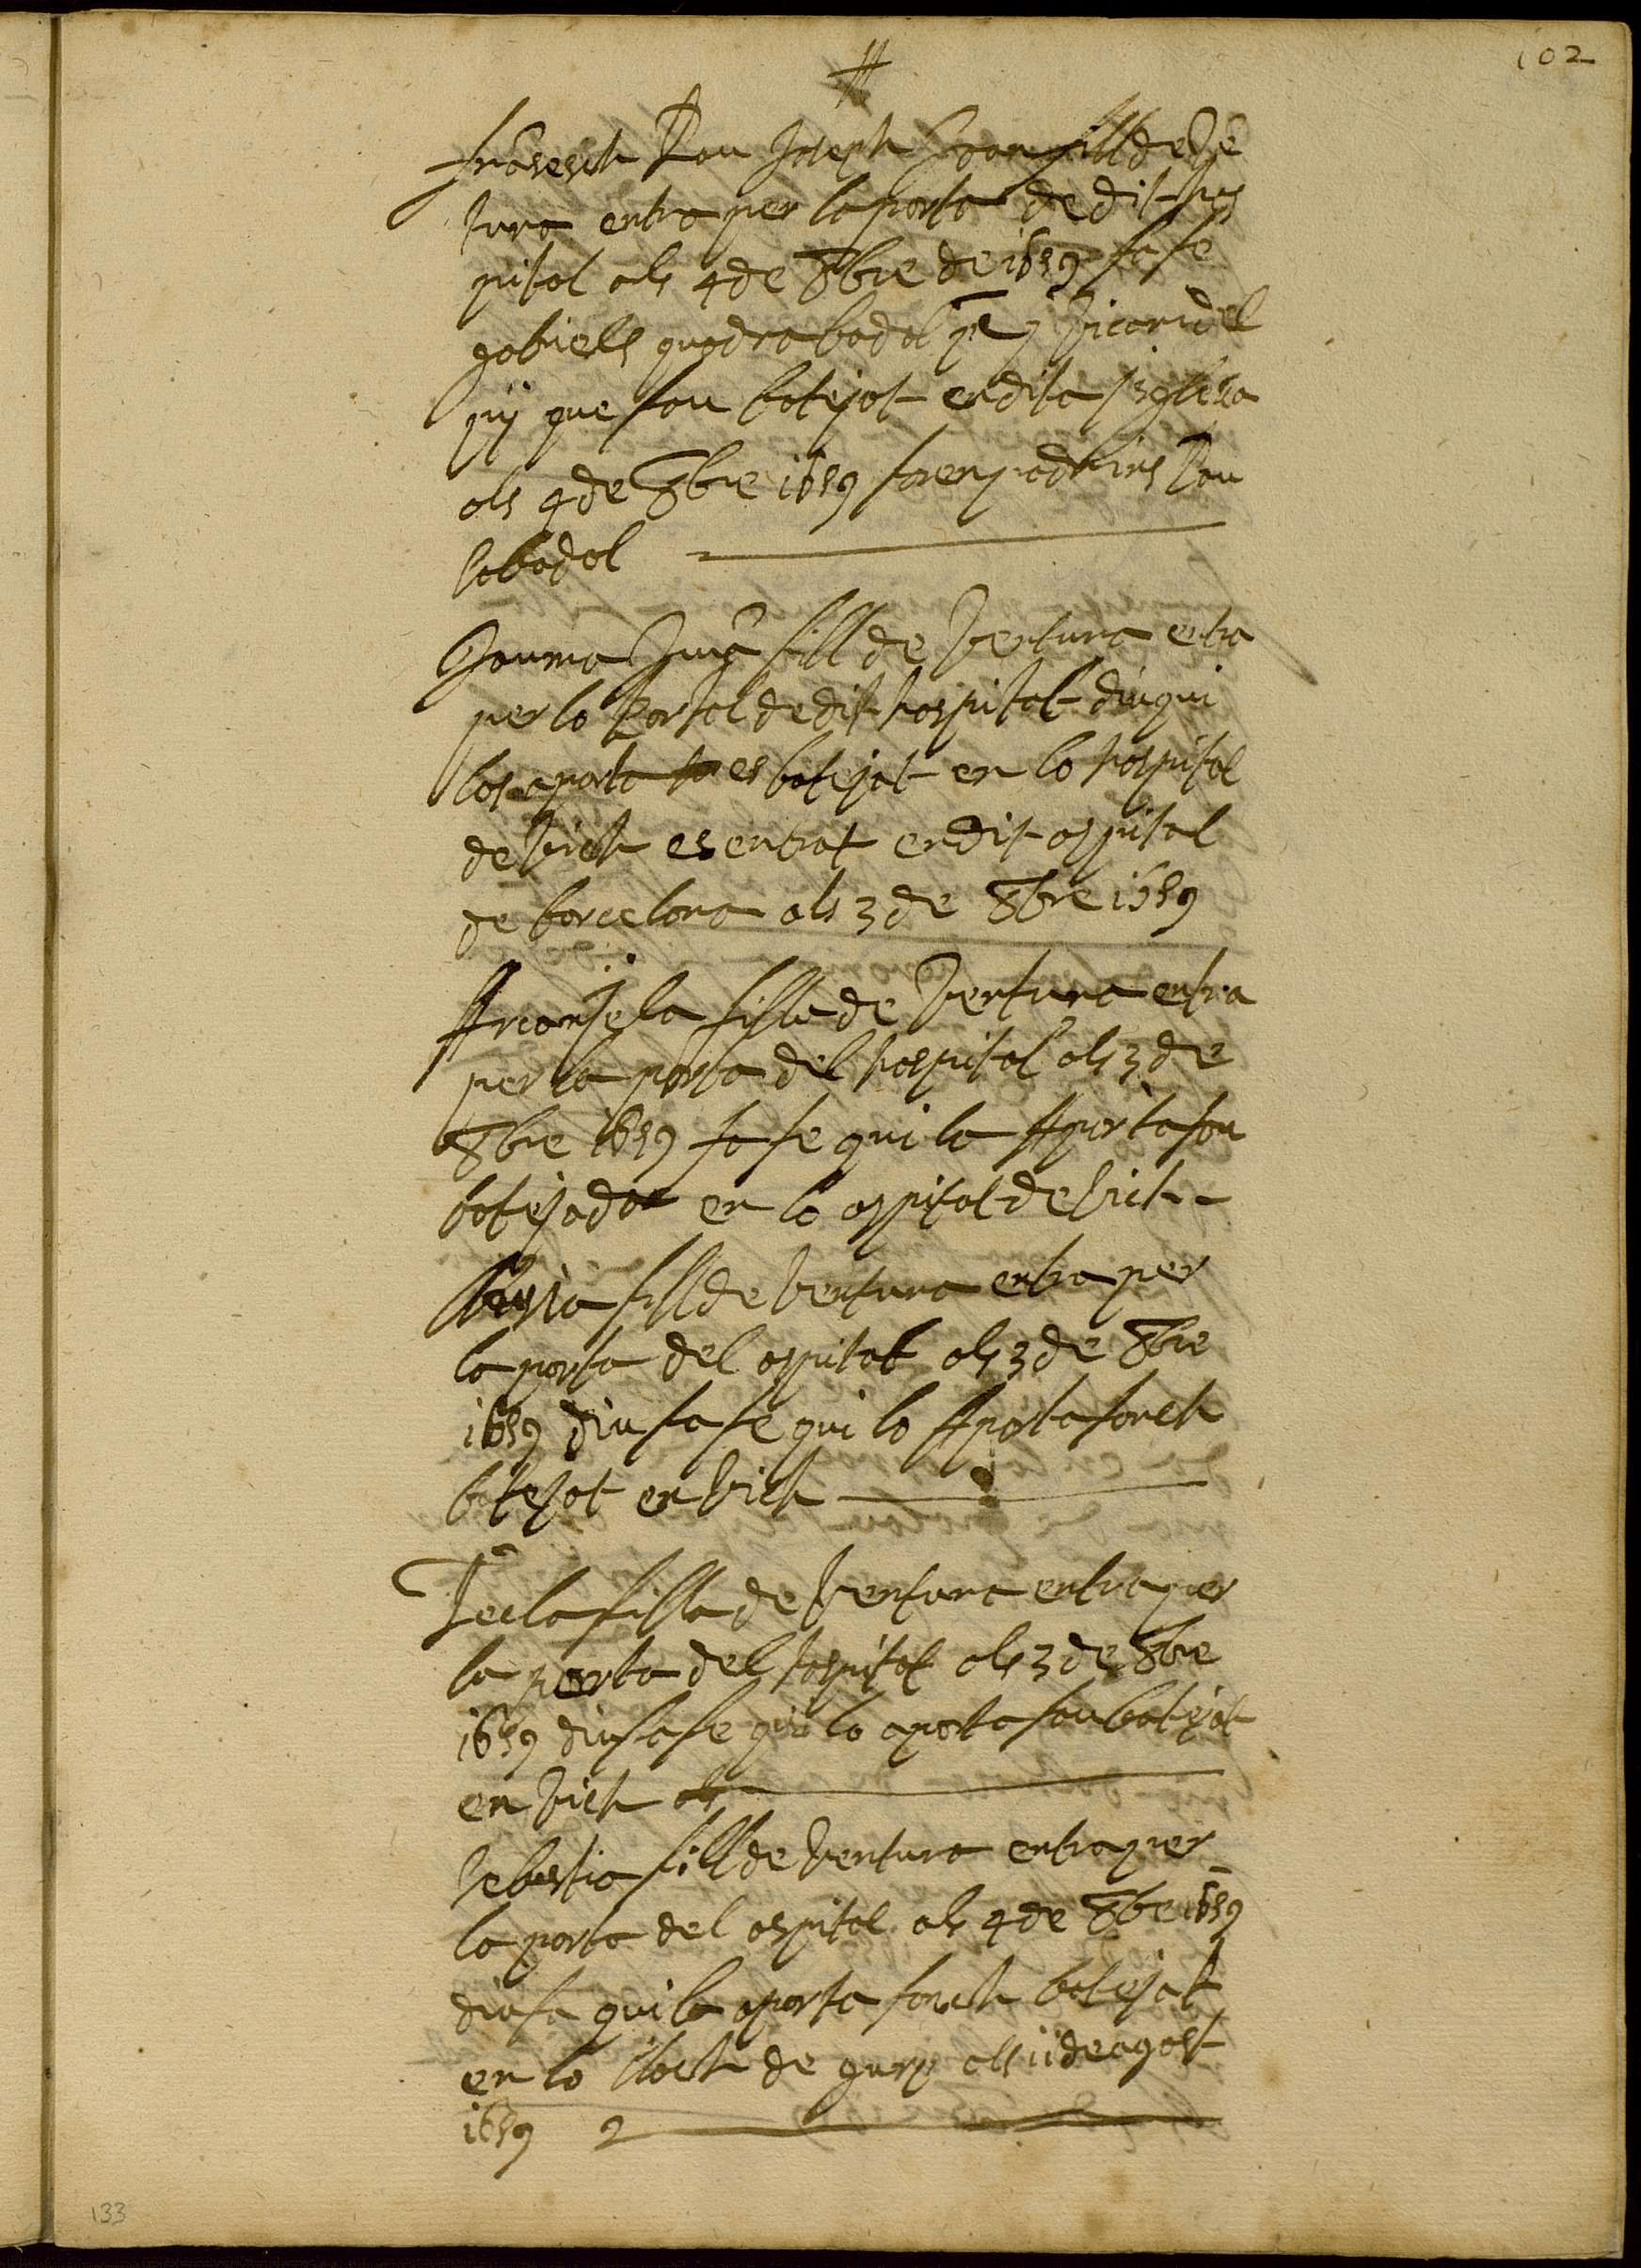 102
Pau Joseph Joan fill de Ve
tura entra per la porta de dit hos
pital als 4 de 8bre de 1659 fa fe
gabriels vicari del
pij que fou batejat en dita
als 4 de 8bre 1659 foren padrins Pau
Sabadal
Jauma fill de Ventura entra
per lo portal de dit hospital diu qui
los aporta es batejat en lo hospital
de Vich es entrat en dit ospital
de barcelona als 3 de 8bre 1659
Arcanjela filla de Ventura entra
per la porta del hospital als 3 de
8bre 1659 fa fe qui la Aporta fou
batejada en lo ospital de Vich
fill de Ventura entra per
la porta del ospital als 3 de 8bre
1659 diu fa fe qui lo Aporta fonch
batejat en Vich
Tecla filla de Ventura entra per
la porta del hospital als 3 de 8bre
1659 diu fa fe qui la aporta fou batejat
en Vich
Sebastia fill de Ventura entra per
la porta del ospital als 4 de 8bre 1659
diu fa qui lo aporta fonch batejat
en lo lloch de gurp als ii de agost
1659
133